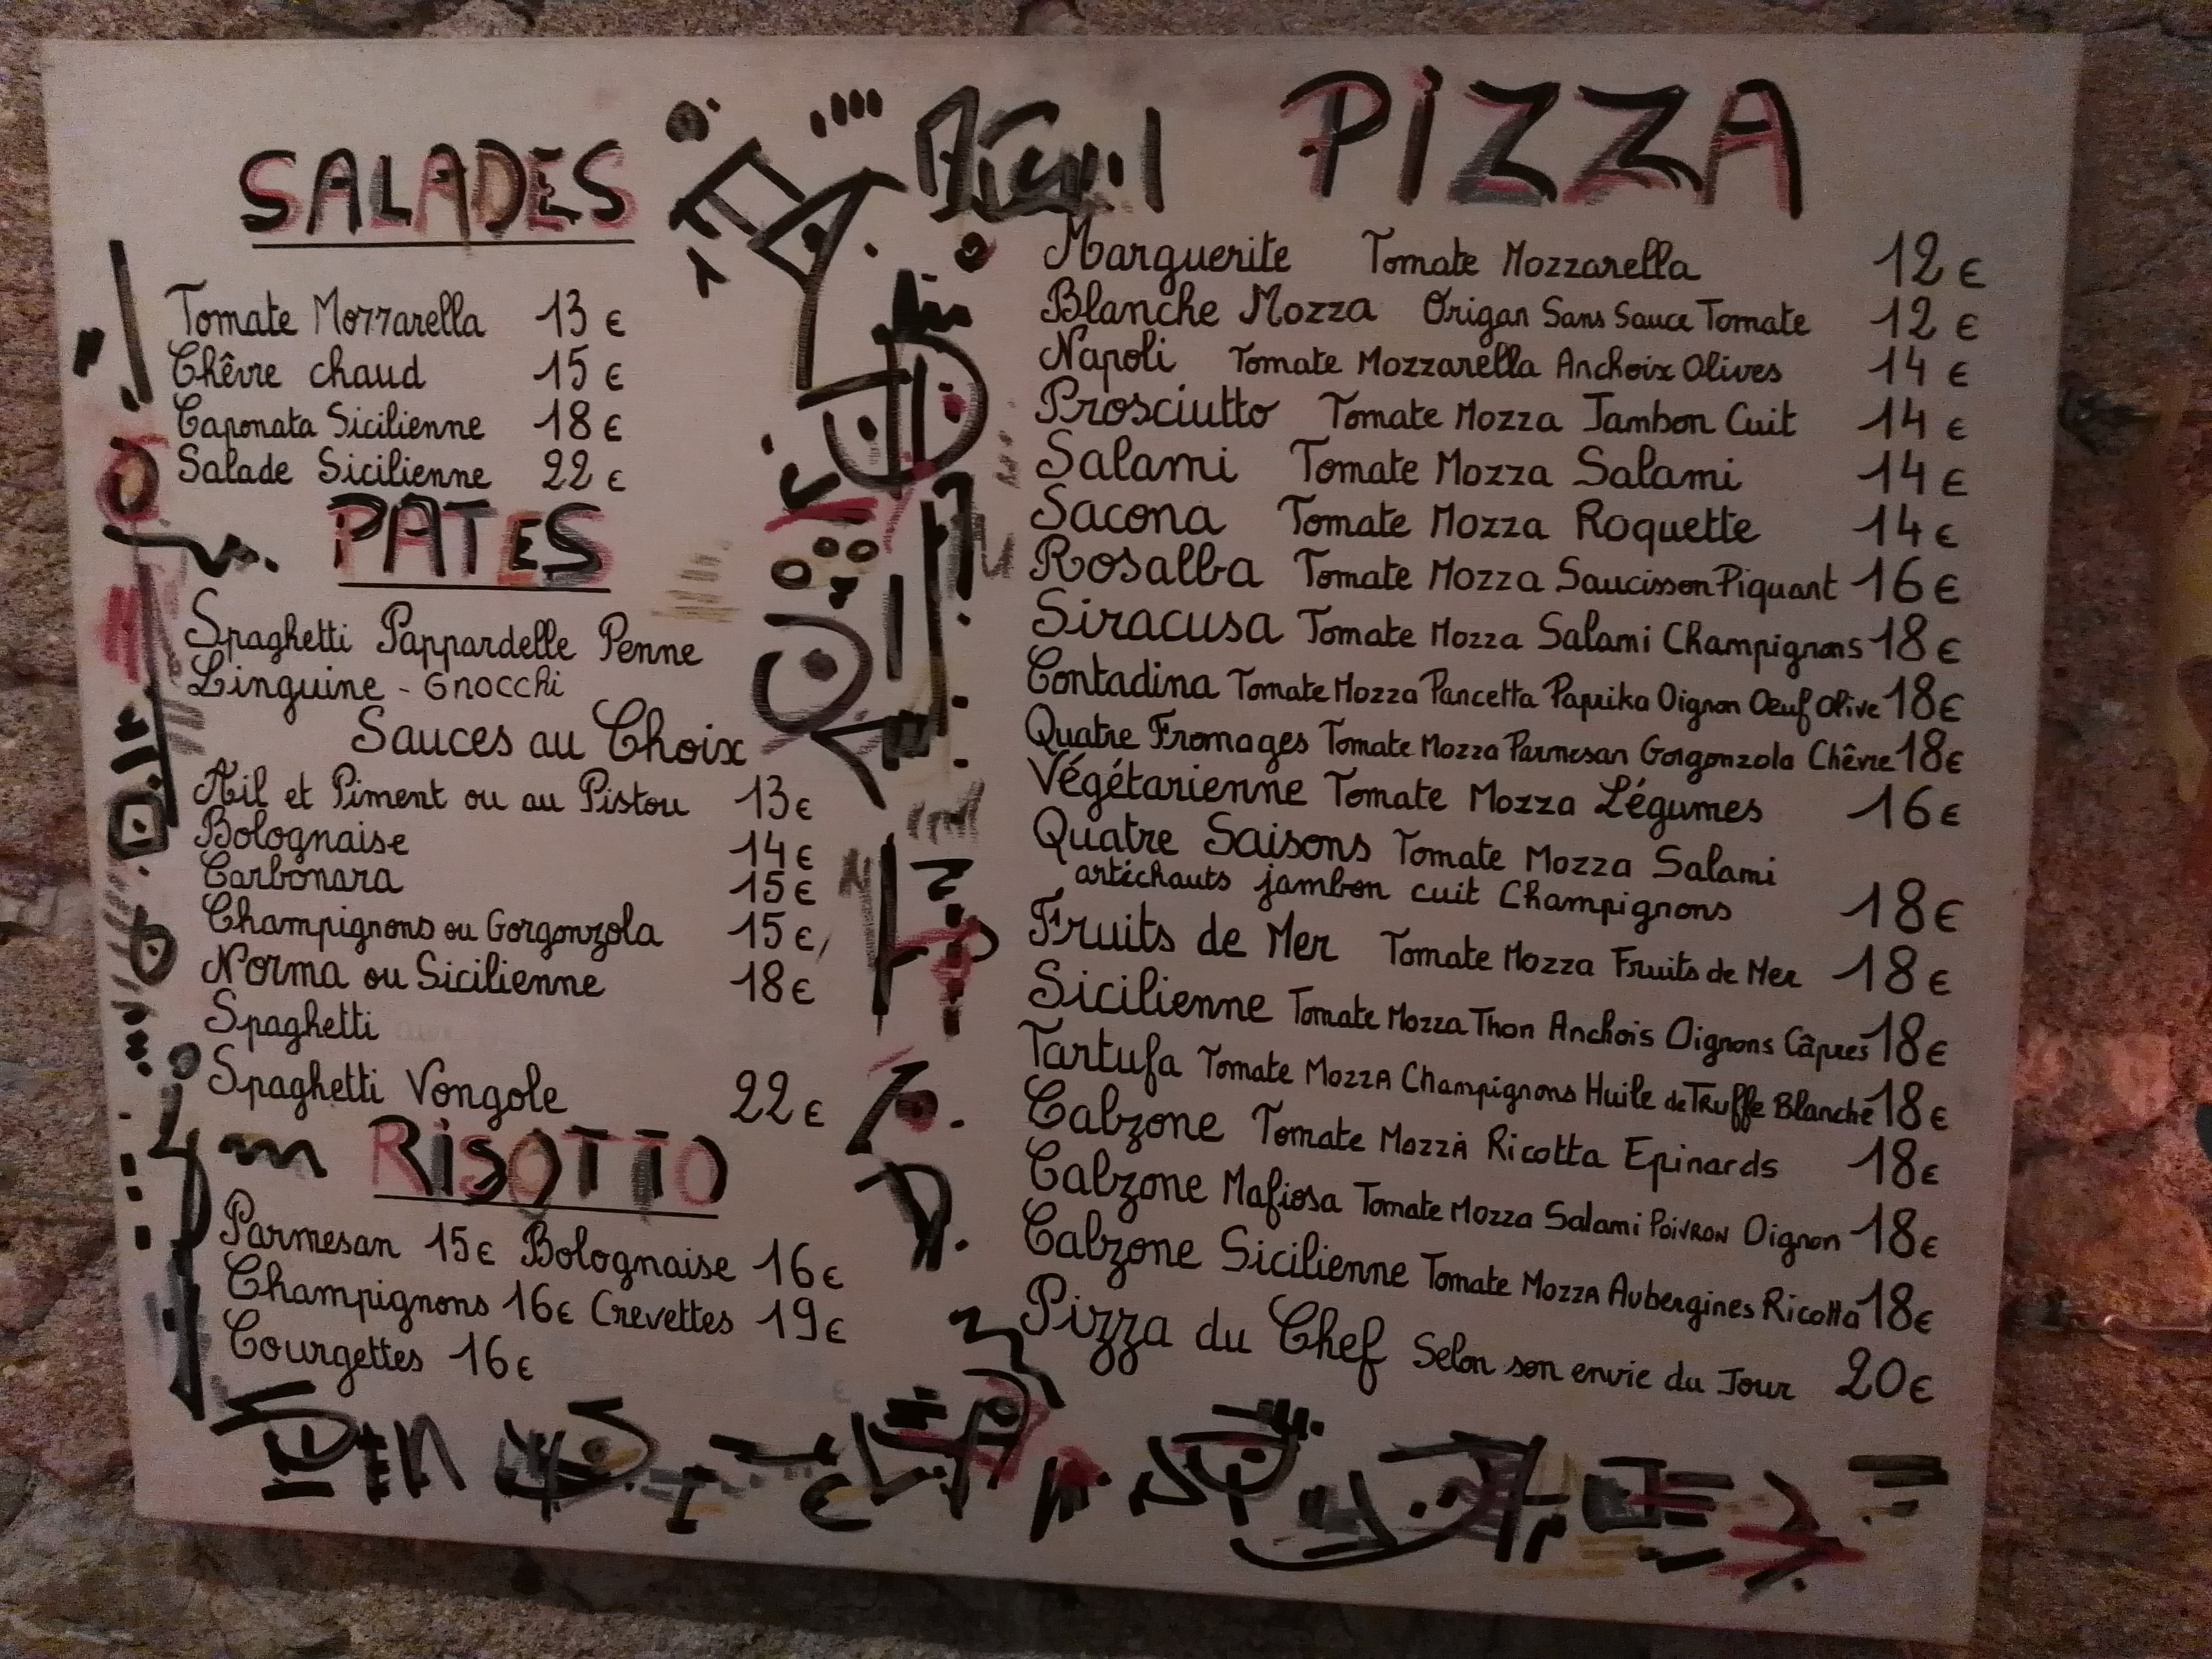 SALADES
Tomate Mozzarella 13 €
Chêvre chaud 15 €
Caponata Sicilienne 18 €
Salade Sicilienne 22 €
PATES
Spaghetti Pappardelle Penne
Linguine - Gnocchi
Sauces au Choix
Ail et Piment ou au Pistou 13€
Bolognaise 14€
Carbonara 15€
Champignons ou Gorgonzola 15€
Norma ou Sicilienne 18€
Spaghetti
Spaghetti Vongole 22€
RISOTTO
Parmesan 15€ Bolognaise 16€
Champignons 16€ Crevettes 19€
Courgettes 16€
PIZZA
Marguerite Tomate Mozzarella 12€
Blanche Mozza Origan Sans Sauce Tomate 12€
Napoli Tomate Mozzarella Anchoix Olives 14€
Prosciutto Tomate Mozza Jambon Cuit 14€
Salami Tomate Mozza Salami 14€
Sacona Tomate Mozza Roquette 14€
Rosalba Tomate Mozza Saucisson Piquant 16€
Siracusa Tomate Mozza Salami Champignons 18€
Contadina Tomate Mozza Pancetta Paprika Oignon Oeuf Olive 18€
Quatre Fromages Tomate Mozza Parmesan Gorgonzola Chêvre 18€
Végétarienne Tomate Mozza Légumes 16€
Quatre Saisons Tomate Mozza Salami
artichauts jambon cuit Champignons 18€
Fruits de Mer Tomate Mozza Fruits de Mer 18€
Sicilienne Tomate Mozza Thon Anchois Oignons Câpres 18€
Tartufa Tomate MozzA Champignons Huile de Truffe Blanche 18€
Calzone Tomate MozzA Ricotta Epinards 18€
Calzone Mafiosa Tomate Mozza Salami PoivRon Oignon 18€
Calzone Sicilienne Tomate MozzA Aubergines Ricotta 18€
Pizza du Chef Selon son envie du Jour 20€